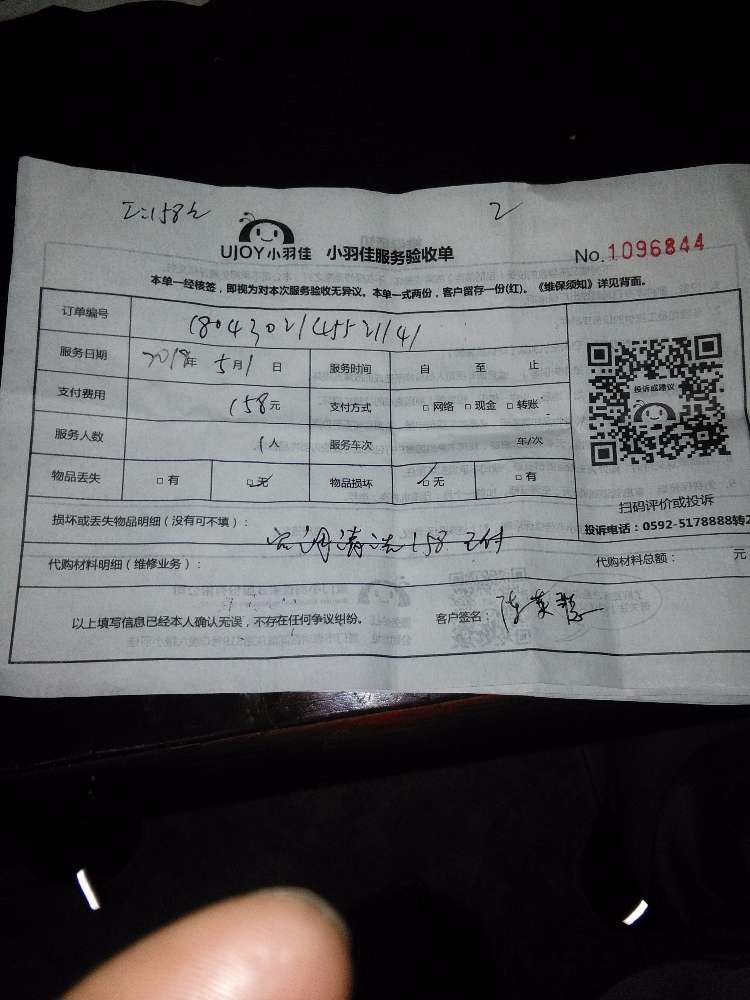 2
UJOY小羽佳 小羽佳服务验收单
No.1096844
本单一经核签，即视为对本次服务验收无异议。本单一式两份，客户留存一份(红)。《维保须知》详见背面。
订单编号
服务日期 2018年 5月1日 服务时间 自 至 止
支付费用 158元 支付方式 □ 网络 □ 现金 □ 转账
服务人数 1人 服务车次 车/次
物品丢失 □ 有 □ 无 物品损坏 □ 无 □ 有
投诉或建议
扫码评价或投诉
投诉电话：0592-5178888转2
损坏或丢失物品明细（没有可不填）：
空调清洗158 已付
代购材料明细（维修业务）： 代购材料总额： 元
以上填写信息已经本人确认无误，不存在任何争议纠纷。 客户签名：